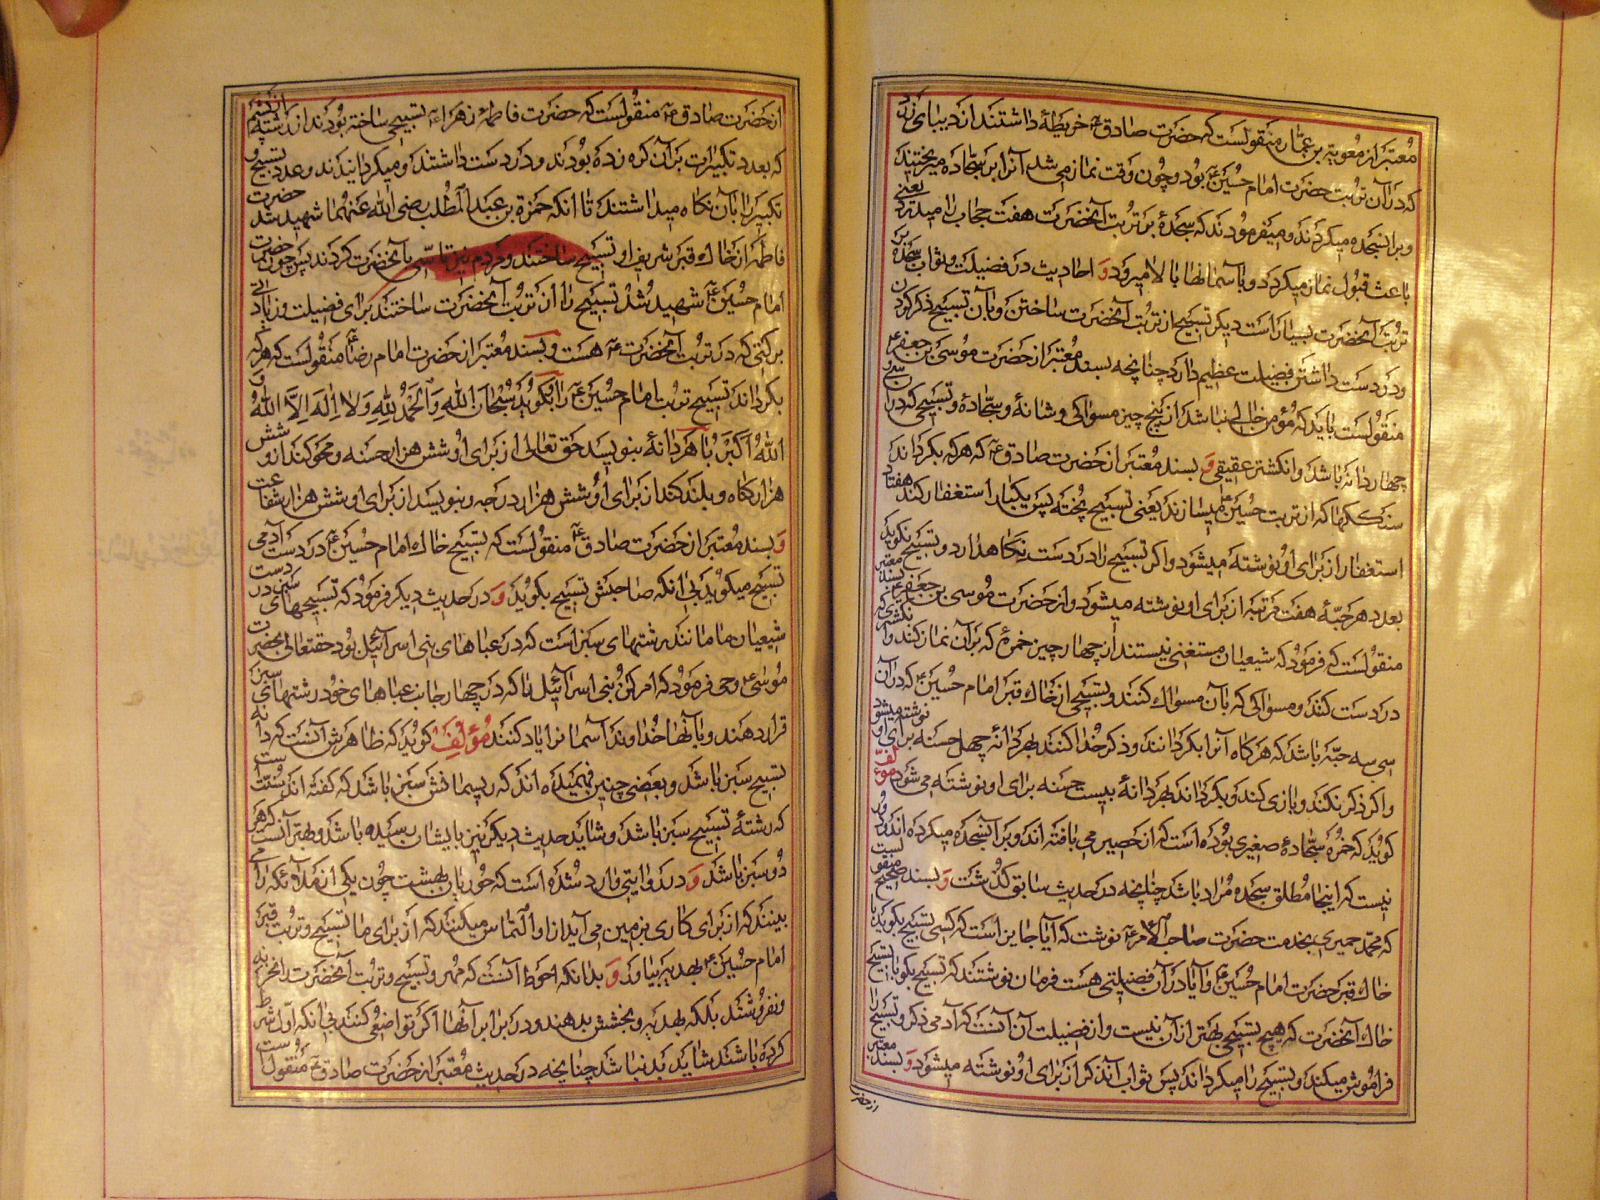 معتبر از معویة بن عمار منقولست که حضرت صادق ع خریطهٔ داشتند از دیبای زرد
که در آن تربت حضرت امام حسین ع بود و چون وقت نماز می شد آنرا بر سجاده میریختند
و بر آن سجده میکردند و میفرمودند که سجدهٔ بر تربت آنحضرت هفت حجاب را میدرد یعنی
باعث قبول نماز میکردد و باسمانها بالا میرود و احادیث در فضیلت و ثواب سجده بر
تربت آنحضرت بسیار است دیکر تسبیح از تربت آنحضرت ساختن و بآن تسبیح ذکر کردن
و در دست داشتن فضیلت عظیم دارد چنانچه بسند معتبر از حضرت موسی بن جعفر ع
منقولست باید که مؤمن خالی نباشد از پنج چیز مسواکی و شانهٔ و سجادهٔ و تسبیحی که در آن سی و
چهار دانه باشد و انکشتر عقیقی و بسند معتبر از حضرت صادق ع که هر که بکرداند
سنکها که از تربت حسین ع میسازند یعنی تسبیح پخته پس یکبار استغفار کند هفتاد
استغفار از برای او نوشته میشود و اکر تسبیح را در دست نکاهدارد و تسبیح نکوید
بعدد هر حبّهٔ هفت مرتبه از برای او نوشته میشود و از حضرت موسی بن جعفر ع بسند معتبر
منقولست که فرمود که شیعیان مستغنی نیستند از چهار چیز خمرهٔ که بر آن نماز کنند و انکشتری که
در دست کنند و مسواکی که بآن مسواک کنند و تسبیحی از خاک قبر امام حسین ع که در آن
سی سه حبّه باشد که هر کاه آنرا بکردانند و ذکر خدا کنند بهر دانه چهل حسنه برای او نوشته میشود
و اکر ذکر نکند و بازی کند و بکرداند بهر دانهٔ بیست حسنه برای او نوشته می شود مؤلّف
کوید که خمره سجادهٔ صغیری بوده است که از حصیر می بافته اند و بر آن سجده میکرده اند و دور
نیست که اینجا مطلق سجده مراد باشد چنانچه در حدیث سابق کذشت و بسند صحیح منقولست
که محمد حمیری بخدمت حضرت صاحب الامر ع نوشت که آیا جایز است که کسی تسبیح بکوید با
خاک قبر حضرت امام حسین ع و آیا در آن فضیلتی هست فرمان نوشتند که تسبیح بکو با تسبیح
خاک آنحضرت که هیچ تسبیحی بهتر از آن نیست و از فضیلت آن آنست که آدمی ذکر و تسبیح را
فراموش میکند و تسبیح را میکرداند پس ثواب آن ذکر از برای او نوشته میشود و بسند معتبر
از حضرت
از حضرت صادق ع منقولست که حضرت فاطمهٔ زهراء ع تسبیحی ساخته بودند از رشتهٔ پشم
که بعدد تکبیرات بر آن کره زده بودند و در دست داشتند و میکردانیدند و عدد تسبیح و
تکبیر را بآن نکاه میداشتند تا آنکه حمزة بن عبد المطلب رضی الله عنهما شهید شد حضرت
فاطمه از خاک قبر شریف او تسبیح ساختند و مردم نیز تاسّی بآنحضرت کردند پس چون حضرت
امام حسین ع شهید شد تسبیح را از تربت آنحضرت ساختند برای فضیلت و زیادتی
برکتی که در تربت آنحضرت ع هست و بسند معتبر از حضرت امام رضا ع منقولست که هر که
بکرداند تسبیح تربت امام حسین ع را و بکوید سُبْحَانَ اللّٰهِ وَالْحَمْدُ لِلّٰهِ وَلَا اِلٰهَ اِلَّا اللّٰهُ وَ
اللّٰهُ اَکْبَرُ با هر دانهٔ بنویسد حق تعالی از برای او شش هزار حسنه و محو کند از و شش
هزار کناه و بلند کند از برای او شش هزار درجه و بنویسد از برای او شش هزار شفاعت
و بسند معتبر از حضرت صادق ع منقولست که تسبیح خاک امام حسین ع در دست آدمی
تسبیح میکوید بی آنکه صاحبش تسبیح بکوید و در حدیث دیکر فرمود که تسبیحهای سبز در دست
شیعیان ما مانند رشتهای سبز است که در عباهای بنی اسرائیل بود حقتعالی بحضرت
موسی ع وحی فرمود که امر کن بنی اسرائیل را که در چهار جانب عباهای خود رشتهای سبز
قرار دهند و بآنها خداوند آسمانرا یاد کنند مؤلّف کوید که ظاهرش آنست که دانه
تسبیح سبز باشد و بعضی چنین فهمیده اند که ریسمانش سبز باشد که کفته اند سنّتست
که رشتهٔ تسبیح سبز باشد و شاید حدیث دیکر نیز بایشان رسیده باشد و بهتر آنست که هر
دو سبز باشد و در روایتی وارد شده است که حوریان بهشت چون یکی از ملائکه را
بینند که از برای کاری بزمین می آید از او التماس میکنند که از برای ما تسبیح و تربت قبر
امام حسین ع بهدیه بیاورد و بدانکه احوط آنست که مهر و تسبیح و تربت آنحضرت را نخرند
و نفروشند بلکه بهدیه و بخشش بدهند و در برابر آنها اکر تواضعی کنند بی آنکه اول شرط
کرده باشند شاید بد نباشد چنانچه در حدیث معتبر از حضرت صادق ع منقولست